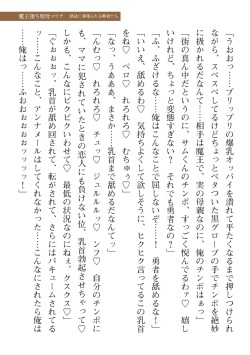 魔王堕ち聖母マリナ
「うおおっ…プリップリの爆乳オッパイを潰れて平たくなるまで押しつけられ
ながら、スベスベしてるけどちょっとベタついた黒グローブの手でチンポを絶妙
に扱かれるだなんて……相手は魔王で、実の母親なのに、俺のチンポはぁっ」
「街の真ん中だというのに、サムくんのチンポ、すっごく悦んでるわァ♡ 嬉し
いけれど、ちょっと変態すぎない? それでも勇者なの?」
「ふ、ふざけるな……俺はこんなことに屈しないぞ……! 勇者を舐めるなッ」
「いいえ、舐めるわ♡ 気持ちよくして欲しそうに、ヒクヒク言ってるこの乳首
をね♡ ペロ♡ れろれろ♡ むちゅう♡」
「なっ、うあああ、まさか…乳首まで舐めるだなんてッ」
「んむ♡ れろれろ♡ チュッ♡ ジュルルル♡ ンフ♡ 自分のチンポに
も、ママに犯されていたときの恋人にも負けない位、乳首勃起させちゃって♡
しかも、こんなにビクビクいわせて♡ 最低の状況なのにねぇ、クスクス♡」
「ぐおおおッ、乳首が舐め回されて、転がされて、さらにはバキュームされてる
ッ……こんなこと、アンナメールはしてくれなかった……こんなにされたら俺は
……俺はっ……ふおおおおおッッッッ!」